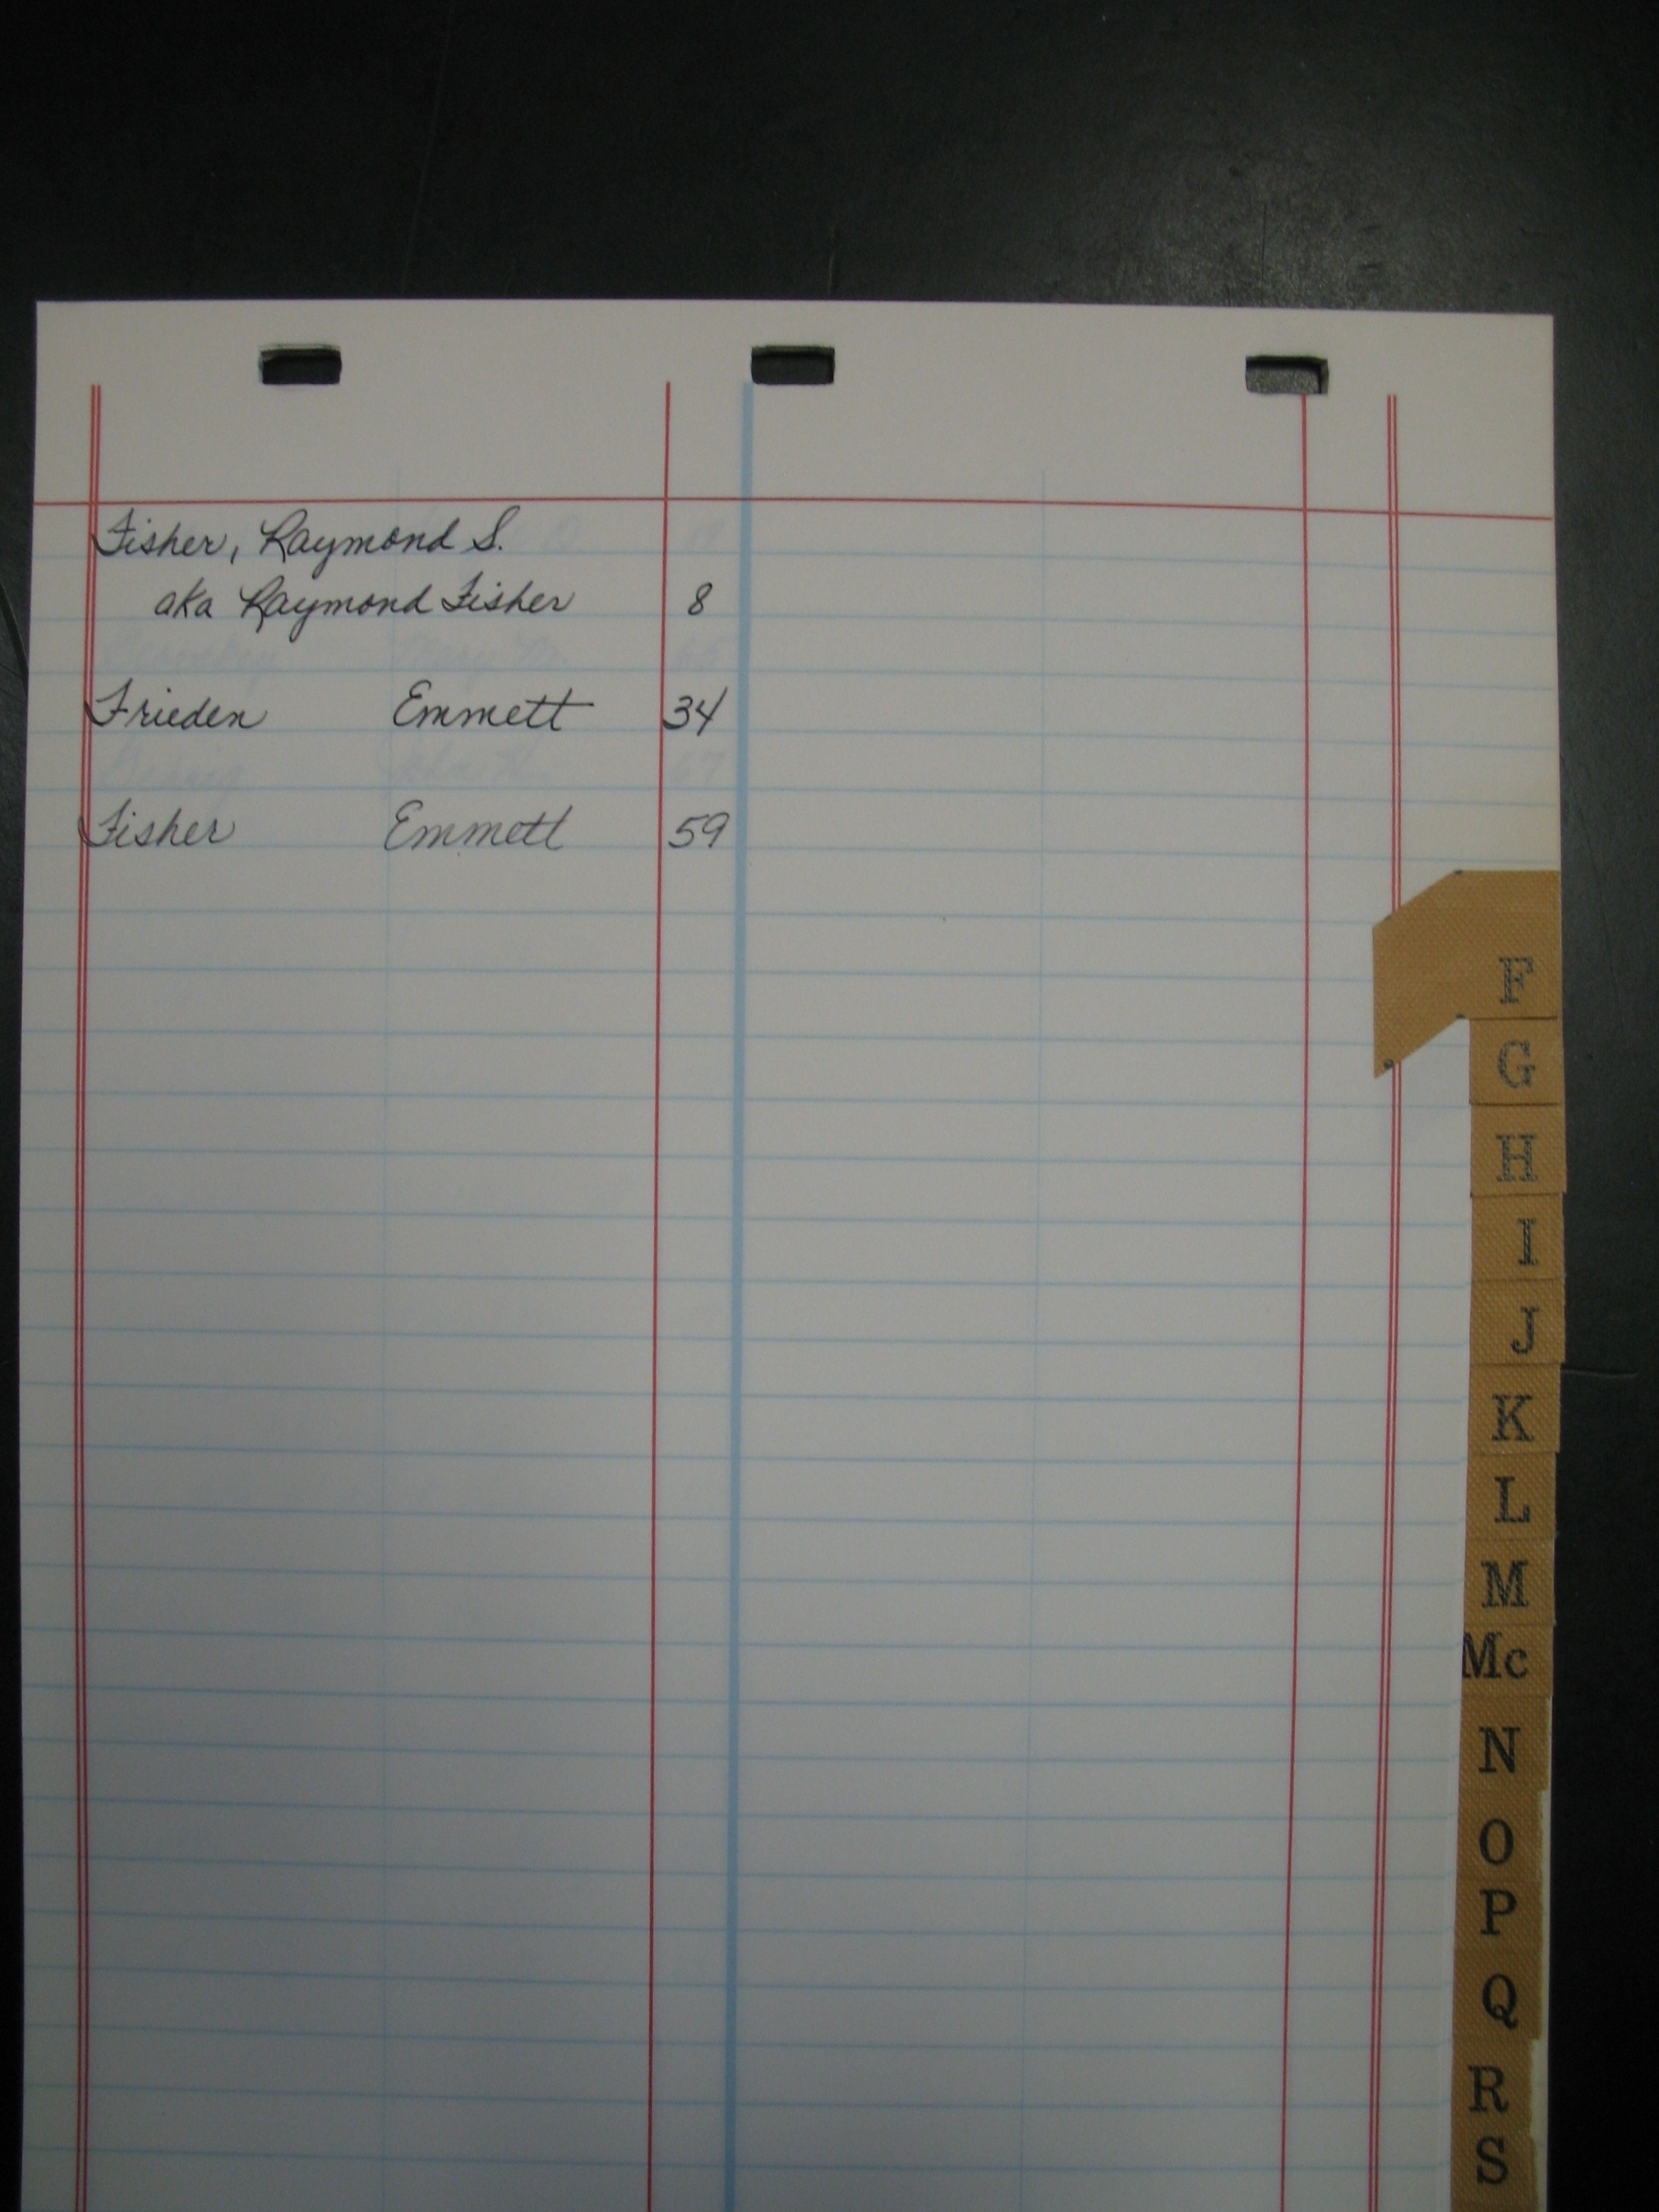 Fisher, Raymond S.
aka Raymond Fisher 8
Frieden Emmett 34
Fisher Emmett 59
F
G
H
I
J
K
L
M
Mc
N
O
P
Q
R
S